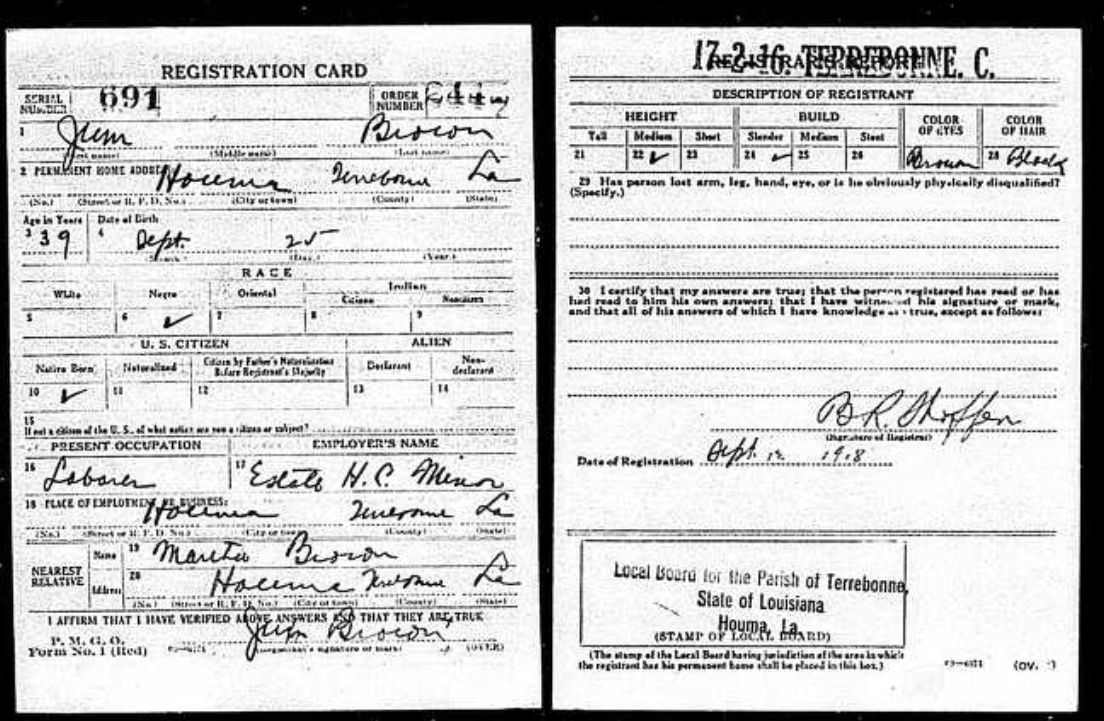 REGISTRATION CARD
SERIAL NUMBER 691 ORDER NUMBER
1 Jim Brown
(First name) (Middle name) (Last name)
2 PERMANENT HOME ADDRESS Houma Terrebonne La
(No.) (Street or R. F. D. No.) (City or town) (County) (State)
Age in Years Date of Birth
3 39 4 Sept. 25
(Month) (Day) (Year)
RACE
White Negro Oriental Indian
Citizen Noncitizen
5 6 ✓ 7 8 9
U. S. CITIZEN ALIEN
Native Born Naturalized Citizen by Father's Naturalization Before Registrant's Majority Declarant Non-declarant
10 ✓ 11 12 13 14
15
If not a citizen of the U. S., of what nation are you a citizen or subject?
PRESENT OCCUPATION EMPLOYER'S NAME
16 Laborer 17 Estate H. C. Minor
18 PLACE OF EMPLOYMENT OR BUSINESS:
Houma Terrebonne La
(No.) (Street or R. F. D. No.) (City or town) (County) (State)
NEAREST RELATIVE
Name 19 Martha Brown
Address 20 Houma Terrebonne La
(No.) (Street or R. F. D. No.) (City or town) (County) (State)
I AFFIRM THAT I HAVE VERIFIED ABOVE ANSWERS AND THAT THEY ARE TRUE
P. M. G. O.
Form No. 1 (Red) Jim Brown
(Registrant's signature or mark) (OVER)
17-2-16. TERREBONNE. C.
REGISTRAR'S REPORT
DESCRIPTION OF REGISTRANT
HEIGHT BUILD COLOR OF EYES COLOR OF HAIR
Tall Medium Short Slender Medium Stout
21 22 ✓ 23 24 ✓ 25 26 Brown 28 Black
29 Has person lost arm, leg, hand, eye, or is he obviously physically disqualified?
(Specify.)
30 I certify that my answers are true; that the person registered has read or has
had read to him his own answers; that I have witnessed his signature or mark,
and that all of his answers of which I have knowledge are true, except as follows:
B. R.
(Signature of Registrar)
Date of Registration Sept. 12 1918
Local Board for the Parish of Terrebonne,
State of Louisiana
Houma, La
(STAMP OF LOCAL BOARD)
(The stamp of the Local Board having jurisdiction of the area in which
the registrant has his permanent home shall be placed in this box.)